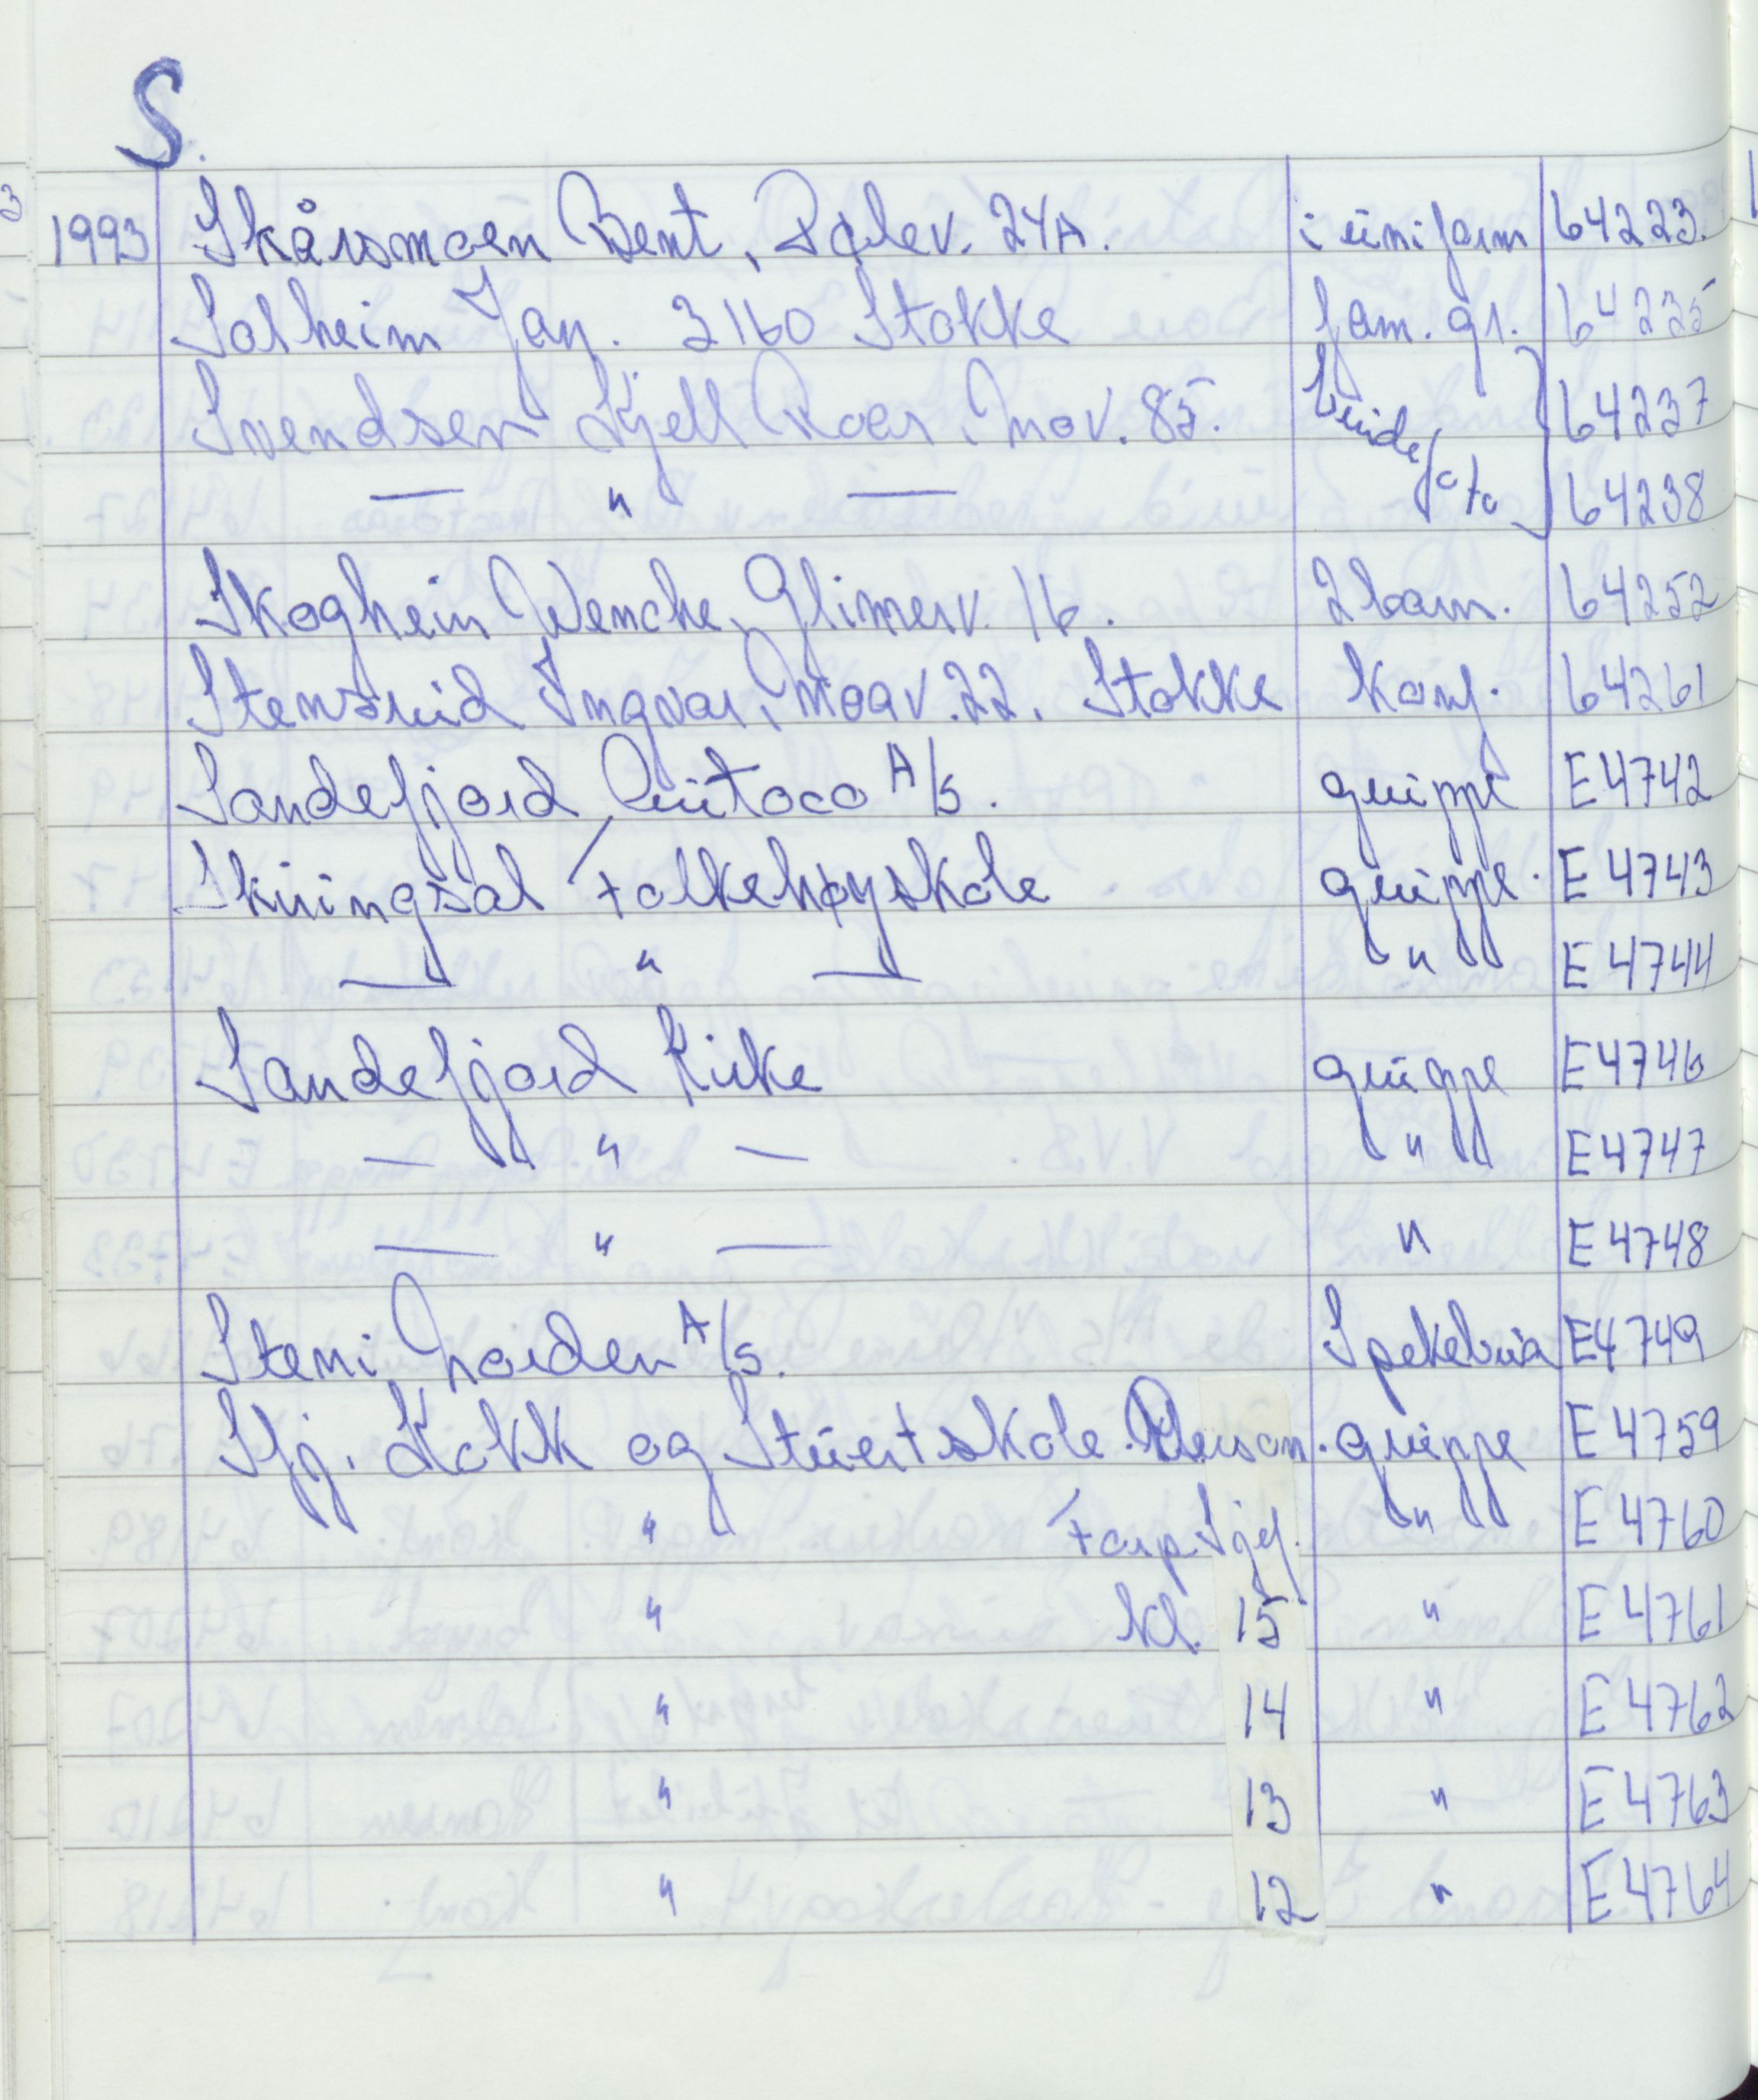 S.
1993 Skårsmoen Bent, Dølev. 24A. i uniform 64223.
Solheim Jan. 3160 Stokke fam. gr. 64235
Svendsen Kjell Roar, Mov. 85. brude/foto 64237
— " — 64238
Skoghein Wenche, Glimerv. 16. 2 barn. 64252
Stensrud Ingvar, Moav. 22. Stokke konf. 64261
Sandefjord Rutoco A/S. gruppe E4742
Skiringsal Folkehøyskole gruppe. E4743
— " — " E4744
Sandefjord Kirke gruppe E4746
— " — " E4747
— " — " E4748
Steni Norden A/S. Spekebua E4749
Sfj. Kokk og Stuertskole. Person. gruppe E4759
" " E4760
" kl. 15 " E4761
" 14 " E4762
" 13 " E4763
" 12 " E4764